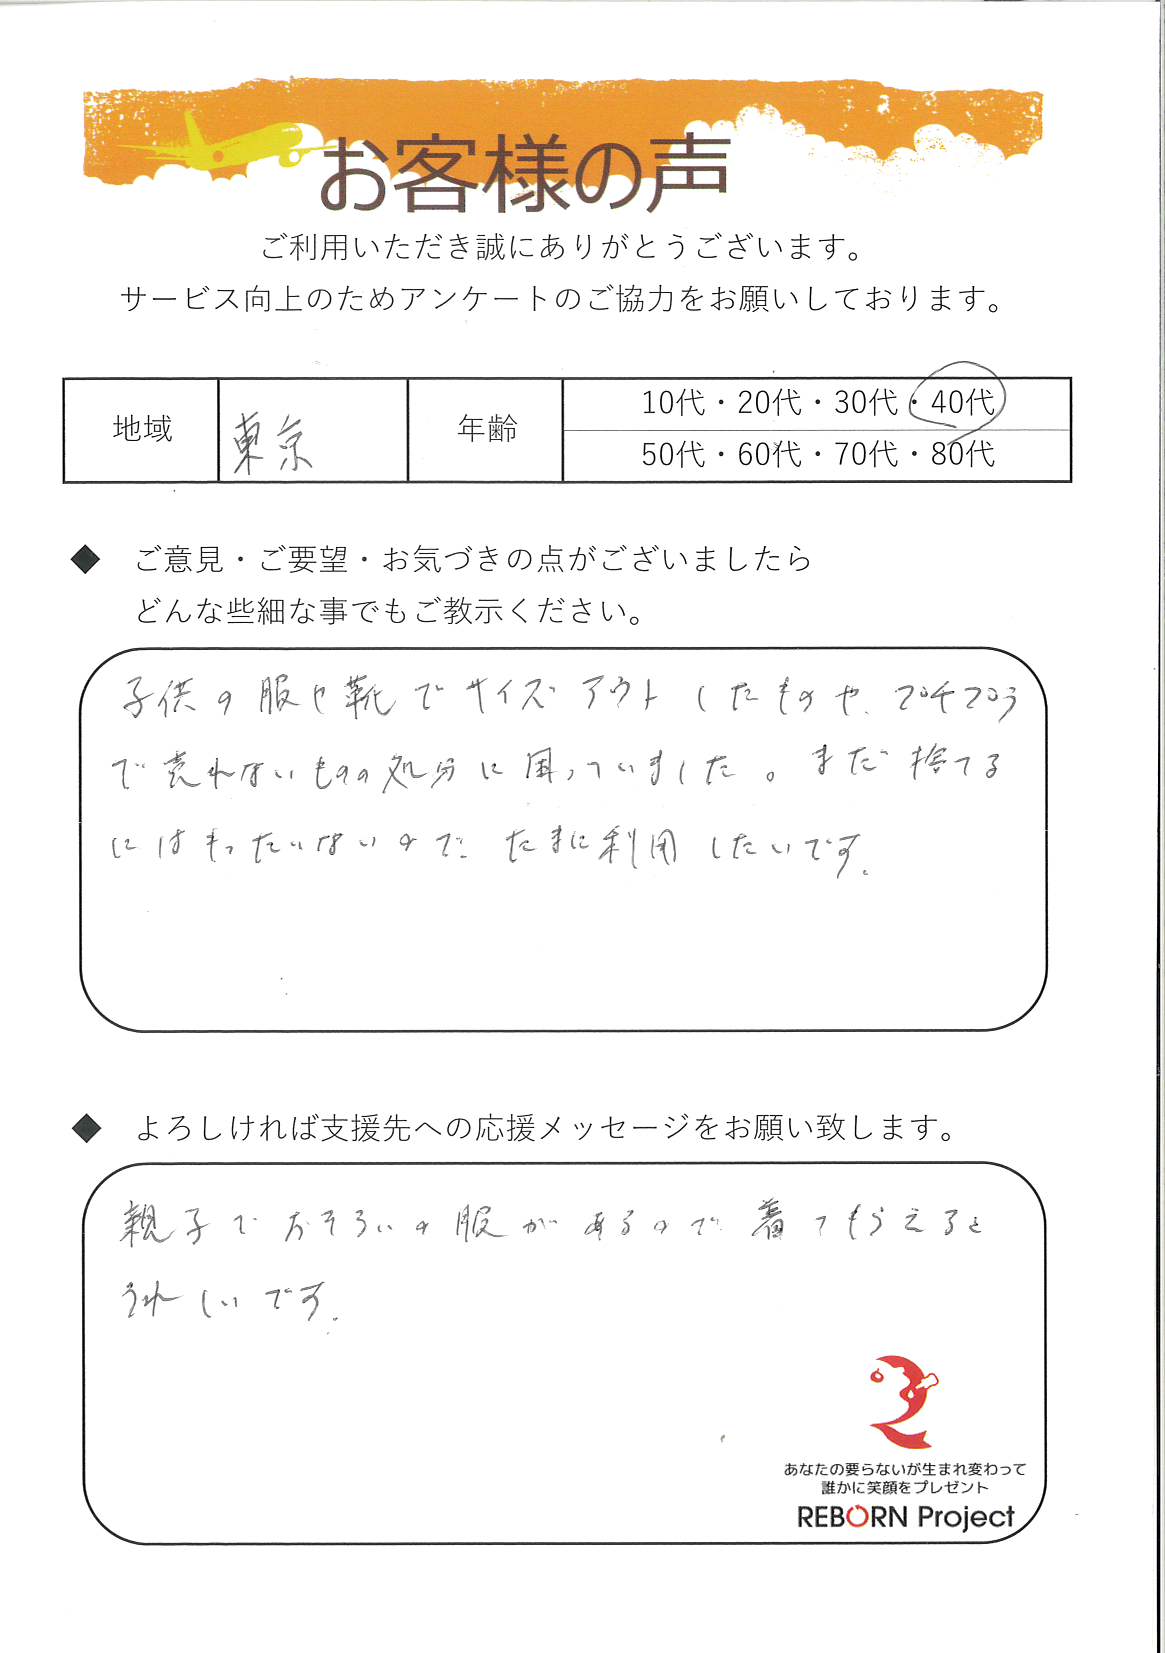 お客様の声
ご利用いただき誠にありがとうございます。
サービス向上のためアンケートのご協力をお願いしております。
地域 東京 年齢 10代・20代・30代・40代
50代・60代・70代・80代
◆ ご意見・ご要望・お気づきの点がございましたら
どんな些細な事でもご教示ください。
子供の服や靴でサイズアウトしたものや、プチプラ
で売れないものの処分に困っていました。まだ捨てる
にはもったいないので、たまに利用したいです。
◆ よろしければ支援先への応援メッセージをお願い致します。
親子でおそろいの服があるので着てもらえると
うれしいです。
あなたの要らないが生まれ変わって
誰かに笑顔をプレゼント
REBORN Project